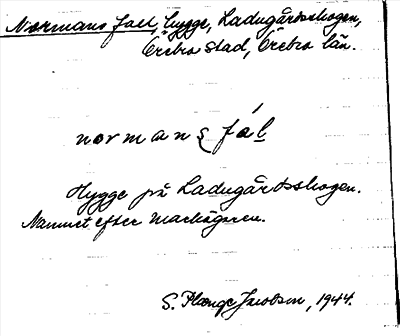 Normans fall, hygge, Ladugårdsskogen,
Örebro stad, Örebro län.
normans fál
Hygge på Ladugårdsskogen.
Namnet efter markägaren.
S. Plænge Jacobson, 1944.